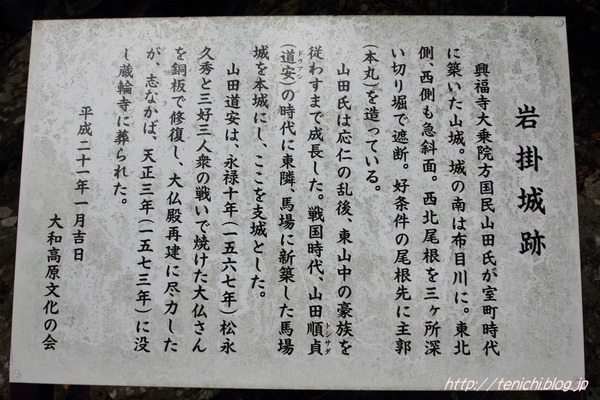 岩掛城跡
興福寺大乗院方国民山田氏が室町時代
に築いた山城。城の南は布目川に。東北
側、西側も急斜面。西北尾根を三ヶ所深
い切り堀で遮断。好条件の尾根先に主郭
(本丸)を造っている。
山田氏は応仁の乱後、東山中の豪族を
従わすまで成長した。戦国時代、山田順貞トシサダ
(道安ドウアン)の時代に東隣、馬場に新築した馬場
城を本城にし、ここを支城とした。
山田道安は、永禄十年(一五六七年)松永
久秀と三好三人衆の戦いで焼けた大仏さん
を銅板で修復し、大仏殿再建に尽力した
が、志なかば、天正三年(一五七三年)に没
し蔵輪寺に葬られた。
平成二十一年一月吉日
大和高原文化の会
http://tenichi.blog.jp